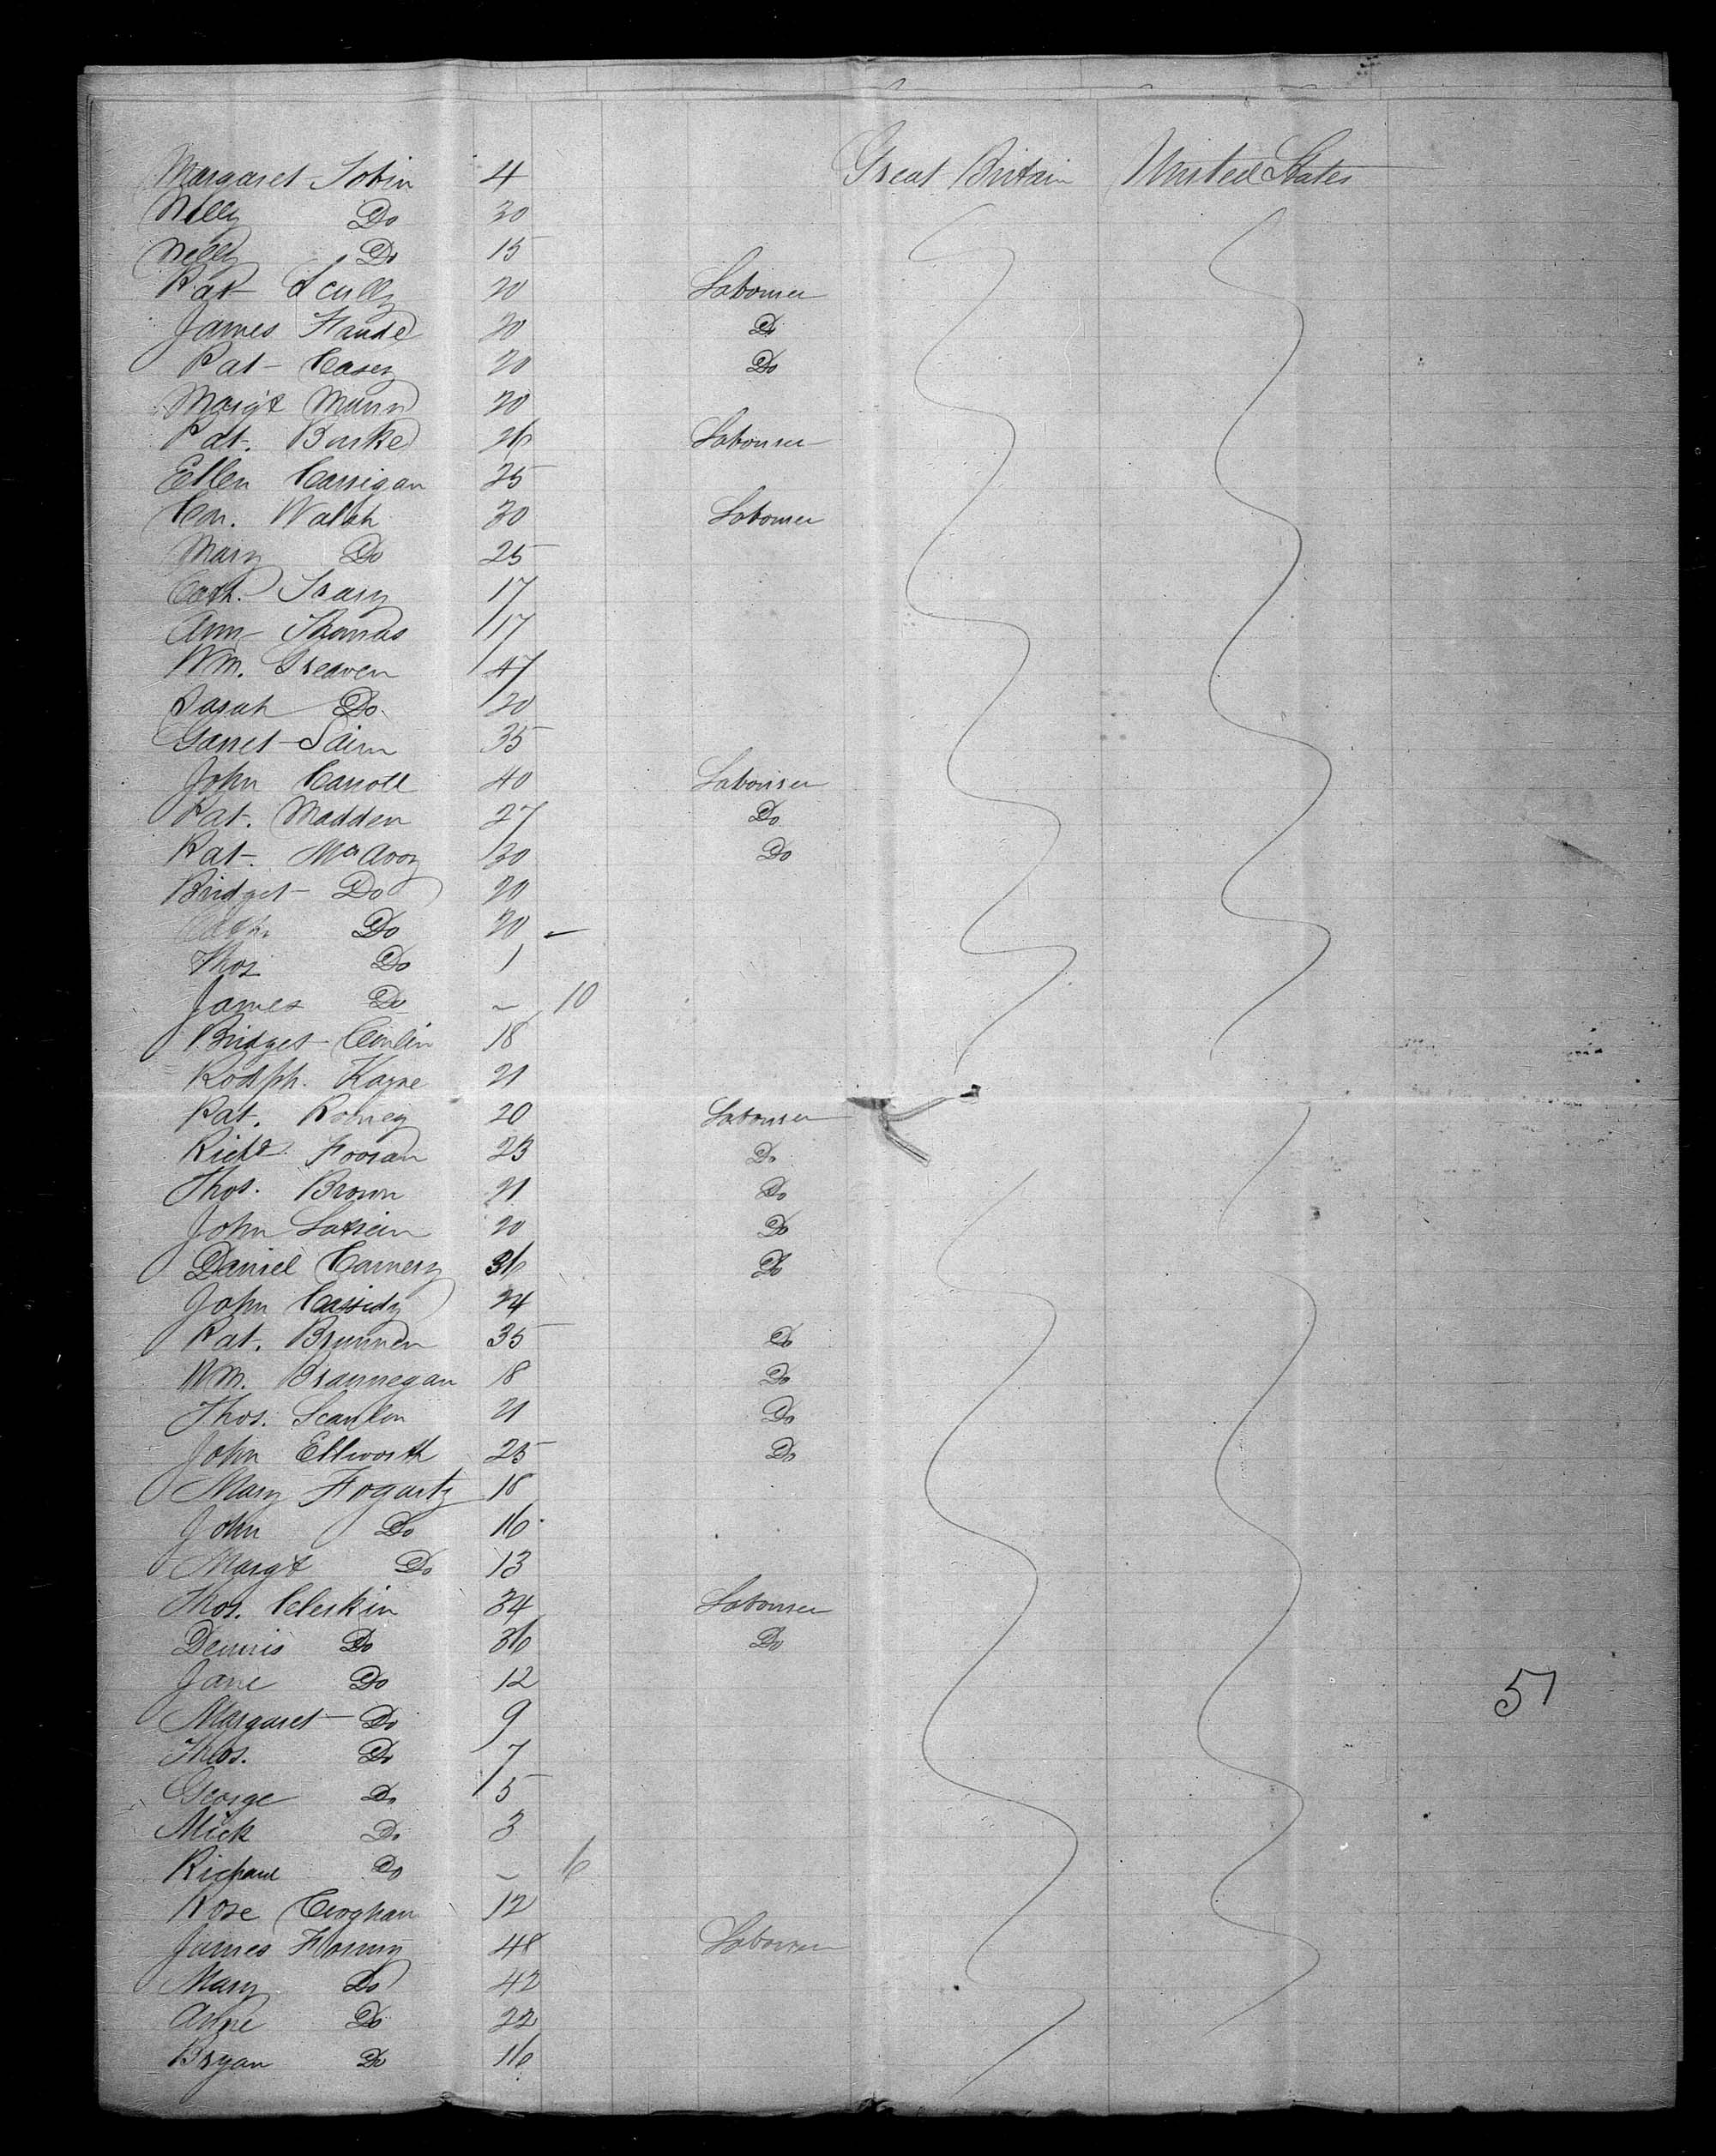 Margaret Tobin 4 Great Britain United States
Nelly Do 30
Nelly Do 15
Pat Scully 20 Labourer
James Do
Pat Casey 20 Do
Marg't Munn 20
Pat. Burke 26 Labourer
Ellen Carrigan 25
Con. Walsh 30 Labourer
Mary Do 25
Cath. 17
Ann Thomas 17
Wm. Greaven 47
Sarah Do. 20
Garret 35
John Carroll 40 Labourer
Pat. Madden 27 Do
Pat. McAvoy 30 Do
Bridget Do 20
Cath. Do 20
Thos Do 1
James Do – 10
Bridget Conlin 18
21
Pat. Rooney 20 Labourer
Richd. 23 Do
Thos. Brown 21 Do
John 20 Do
Daniel 36 Do
John Cassidy 24
Pat. 35 Do
Wm. Brannegan 18 Do
Thos. Scanlon 21 Do
John Ellworth 25 Do
Mary Fogarty 18
John Do 16
Margt Do 13
Thos. Cleskin 34 Labourer
Dennis Do 36 Do
Jane Do 12
Margaret Do 9
Thos. Do 7
George Do 5
Mick Do 3
Richard Do – 6
Rose Croghan 12
James 48 Labourer
Mary Do 42
Anne Do 22
Bryan Do 16
51